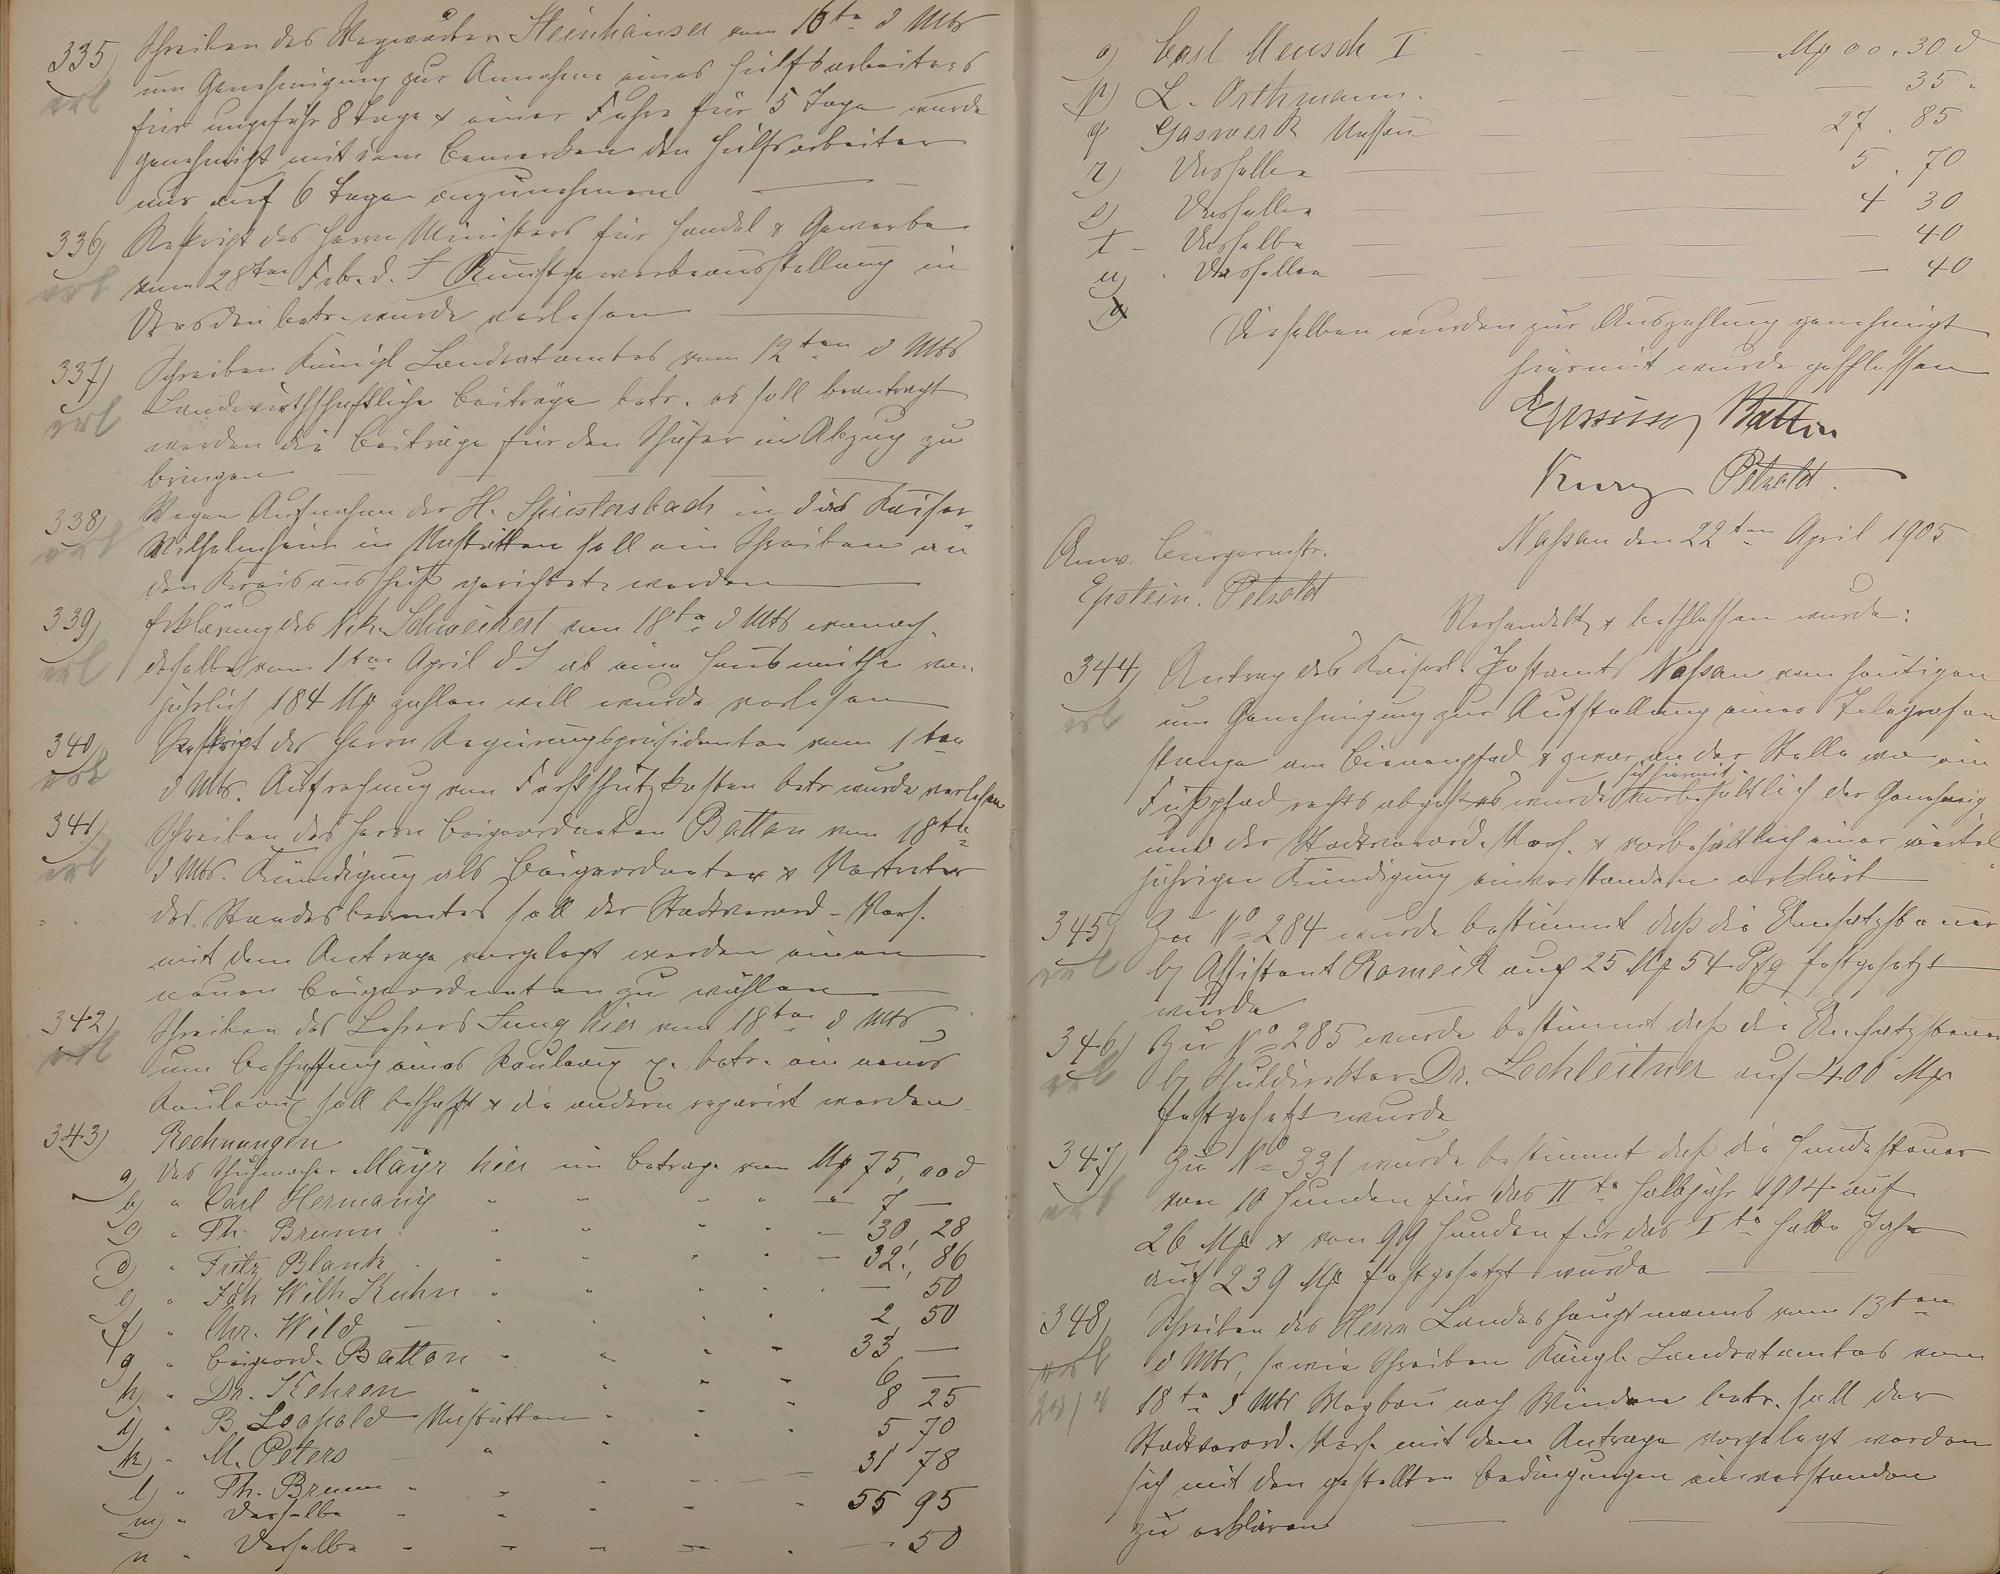 335) Schreiben des Wegewärters Steinhäuser vom 16ten d Mts
erl um Genehmigung zur Annahme eines Hülfsarbeiters
für ungefähr 8 Tage & einer Fuhre für 5 Tage wurde
genehmigt mit dem Bemerken den Hülfsarbeiter
nur auf 6 Tage anzunehmen
336) Reskript des Herrn Ministers für Handel & Gewerbe
erl vom 28ten Feb. d. J Kunstgewerbeausstellung in
Dresden betr. wurde verlesen
337) Schreiben Königl Landratamtes vom 12ten d Mts
erl Landwirthschaftliche Beiträge betr. es soll beantragt
werden die Beiträge für den Schäfer in Abzug zu
bringen
338) Wegen Aufnahme der H. Spiestersbach in das Kaiser-
erl Wilhelmheim in Nastätten soll ein Schreiben an
den Kreisausschuß gerichtet werden
339) Erklärung des Nik. Schweikert vom 18ten d Mts wonach
erl derselbe vom 1ten April d J ab eine Hausmiethe von
jährlich 184 Mk zahlen will wurde verlesen
340) Reskript des Herrn Regierungspräsidenten vom 1ten
erl d Mts. Aufrechnung von Forstschutzkosten betr wurde verlesen
341) Schreiben des Herrn Beigeordneten Batton vom 18ten
erl d Mts. Kündigung als Beigeordneter & Vertreter
des Standesbeamten soll der Stadtverord-Vers.
mit dem Antrage vorgelegt werden einen
neuen Beigeordneten zu wählen
342) Schreiben des Lehrers Jung hier vom 18ten d Mts
erl um Beschaffung eines Rouleaux p. betr. ein neues
Rouleaux soll beschafft & die andern reparirt werden
343) Rechnungen
a) des Schuhmacher Mayr hier im Betrage von Mk 75,00 d
b) " Carl Hermanig " " " " " 7 —
c) " Th. Brunn " " " " — 30, 28
d) " Fritz Blank " " " " — 32., 86
e) " Joh Wilh Kuhn " " " " — 50
f) " Chr. Wild — " " " 2 50
g " Beigeord. Batton " " " " 33 —
h) " Dr. Kehren " " " " 6 —
i) " B Leopold Nastätten " " " 8 25
k) " M. Peters " " " " 5 70
l) " Th. Brunn " " " — 31 78
m) " Derselbe " " " " 55 95
n " Derselbe " " " " — 50
o) Carl Meusch I — — — Mk 00. 30 d
p) L. Orthmann. — — — 35 "
q Gaswerk Nassau — — 27. 85
r) Derselbe — — 5. 70
s) Derselbe — — 4 30
t — Derselbe — — 40
u) . Derselben — — 40
v)
Dieselben wurden zur Auszahlung genehmigt
hiermit wurde geschlossen
Epstein Batton
Kurz Petzold.
Naßau den 22ten April 1905
Anw. Bürgermstr.
Epstein. Petzold
Verhandelt & beschlossen wurde:
344) Antrag des Kaiserl. Postamts Naßau vom heutigen
erl um Genehmigung zur Aufstellung einer Telegrafen
stange am Bienenpfad & zwar an der Stelle wo ein
sich hiermit
Fußpfad rechts abgeht es wurde vorbehaltlich der Genehmig
ung der Stadtverord. Vers. & vorbehaltlich einer viertel
jährigen Kündigung einverstanden erklärt
345) Zu No 284 wurde bestimmt daß die Umsatzsteuer
erl bz Assistent Romeik auf 25 Mk 54 Pfg festgesetzt
wurde
346) Zu No 285 wurde bestimmt daß die Umsatzsteuer
erl bz Schuldirektor Dr. Lechleitner auf 400 Mk
festgesetzt wurde
347) Zu No 331 wurde bestimmt daß die Hundesteuer
erl von 10 Hunden für das IIte Halbjahr 1904 auf
26 Mk & von 99 Hunden für das Ite halbe Jahr
auf 239 Mk festgesetzt wurde
348) Schreiben des Herrn Landeshauptmanns vom 13ten
erl d Mts, sowie Schreiben Köngl. Landratamtes vom
18ten d Mts Wegbau nach Winden betr. soll der
Stadtverord. Vers. mit dem Antrage vorgelegt werden
sich mit den gestellten Bedingungen einverstanden
zu erklären